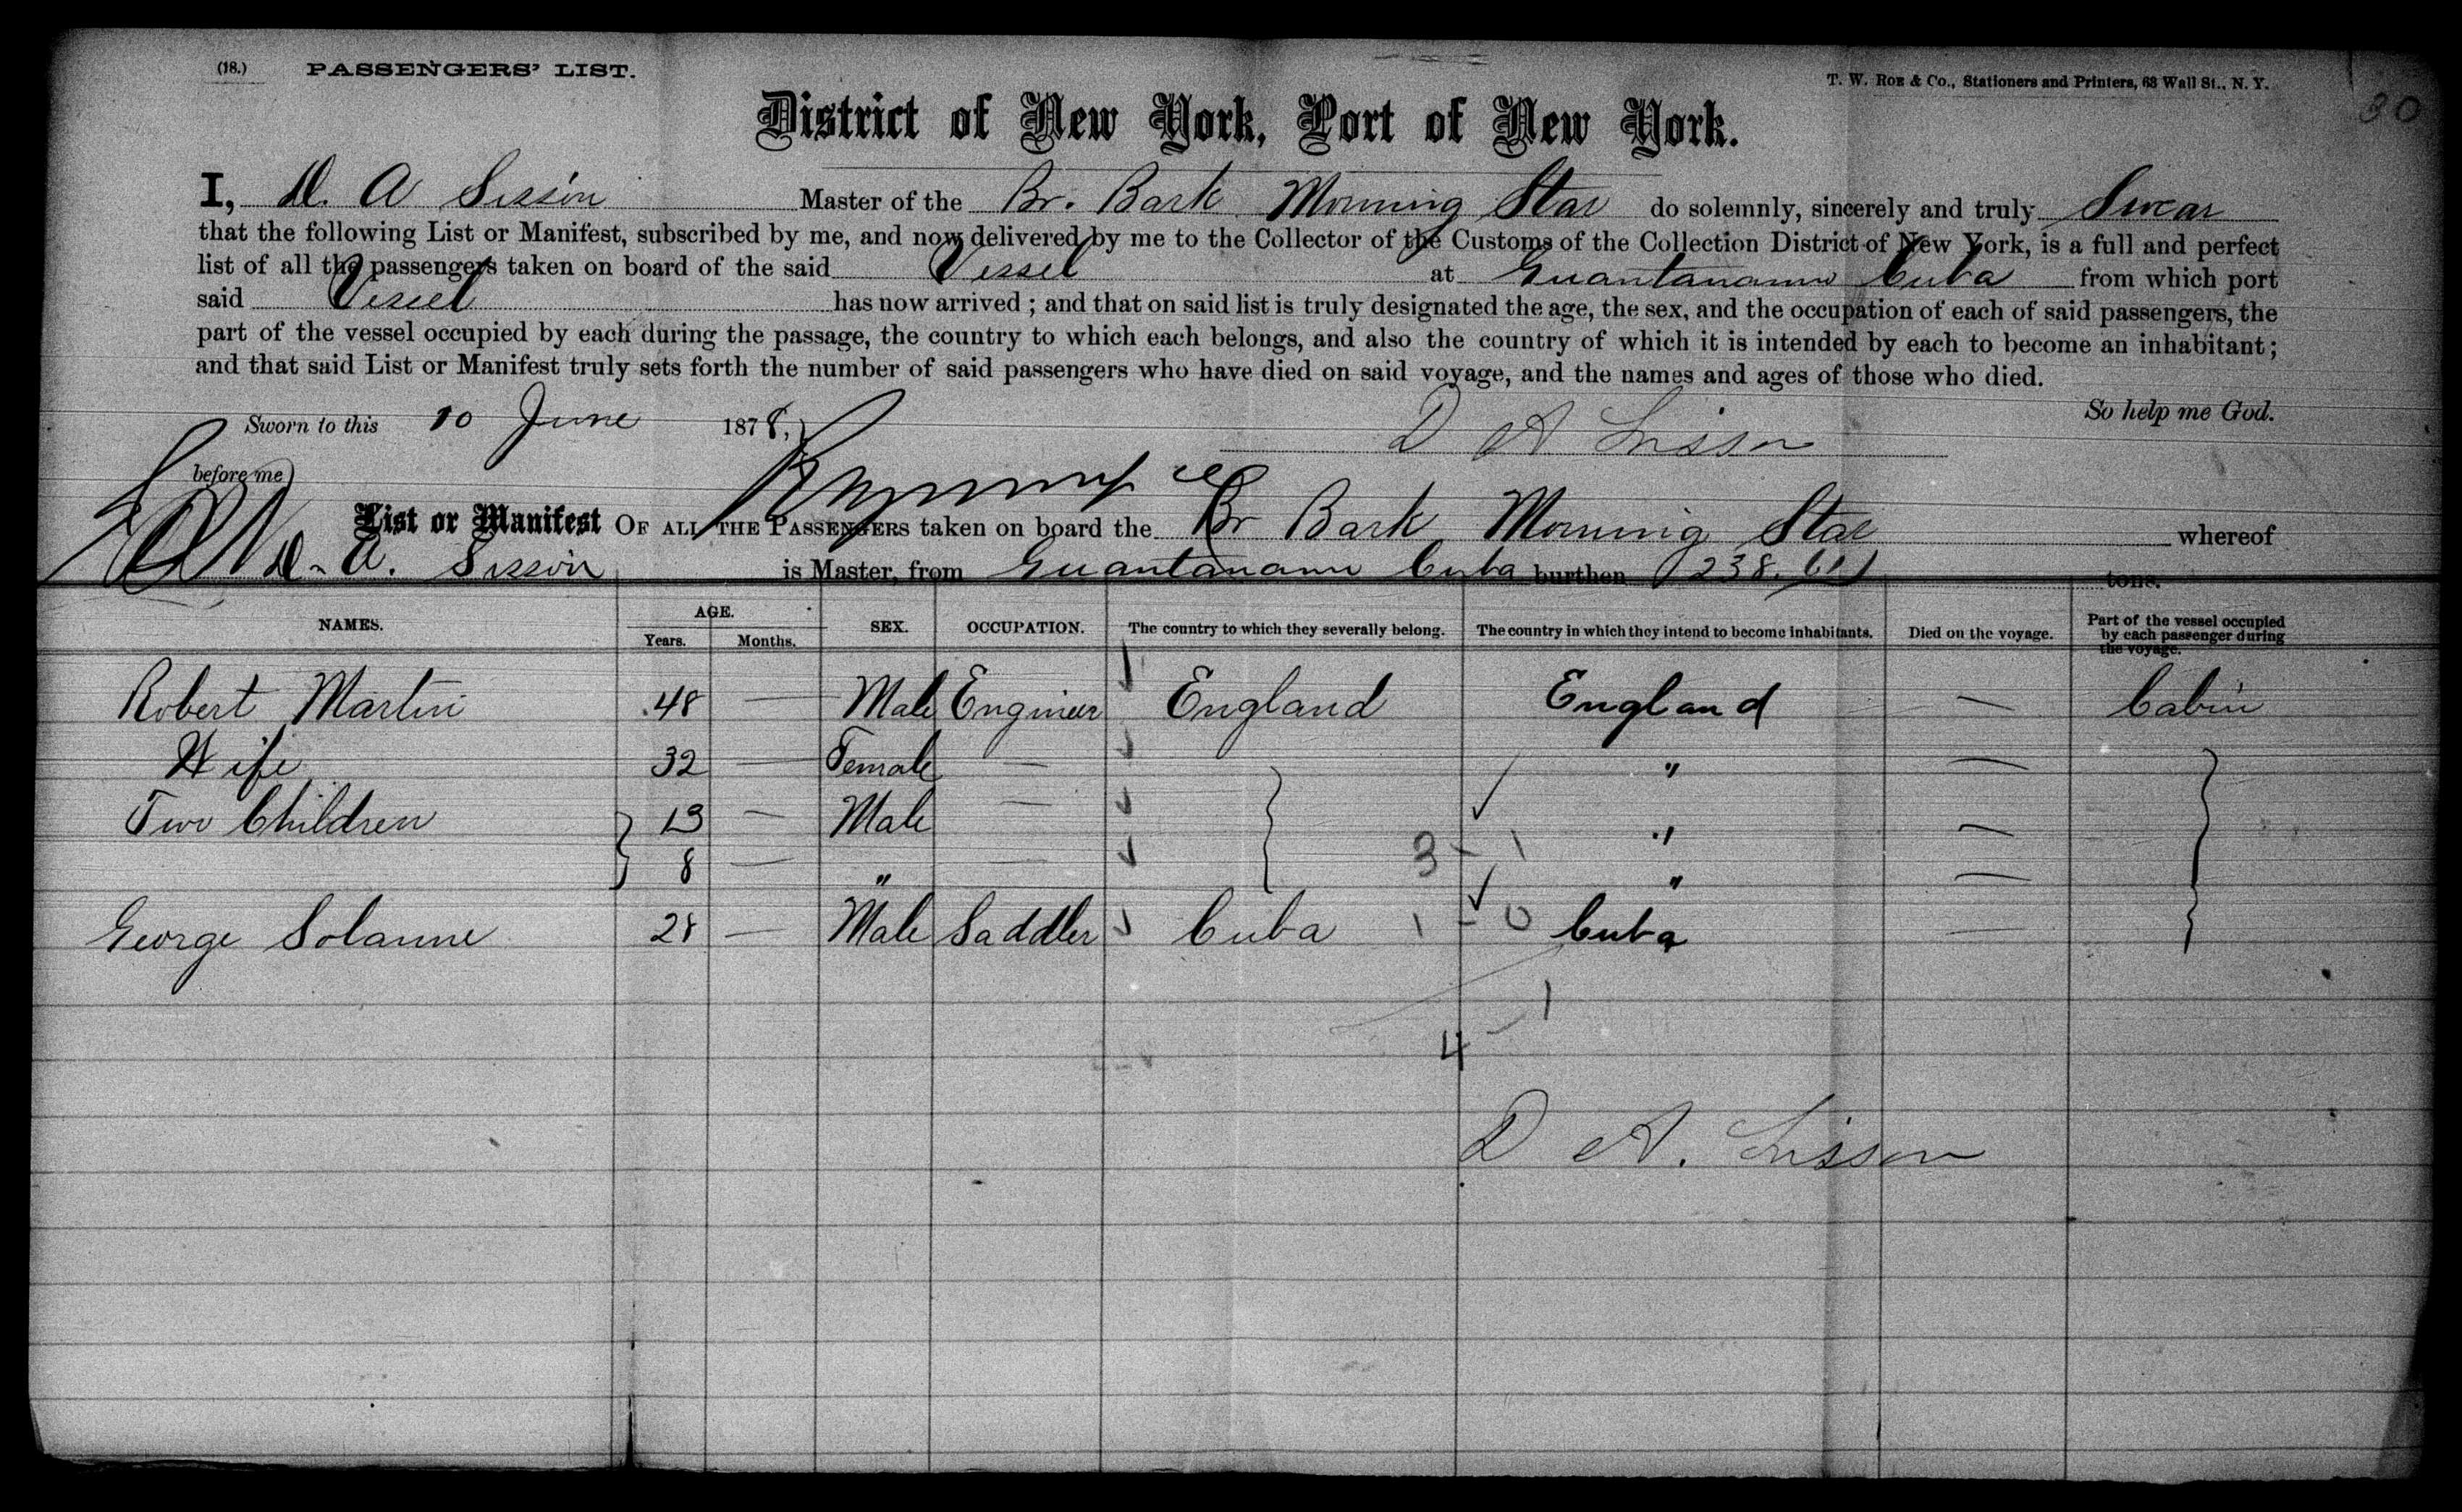 (18.) PASSENGERS' LIST. T. W. ROE & Co., Stationers and Printers, 63 Wall St., N. Y.
30
District of New York, Port of New York.
I, D. A Sisson Master of the Br. Bark Morning Star do solemnly, sincerely and truly Swear
that the following List or Manifest, subscribed by me, and now delivered by me to the Collector of the Customs of the Collection District of New York, is a full and perfect
list of all the passengers taken on board of the said Vessel at Guantanamo Cuba from which port
said Vessel has now arrived ; and that on said list is truly designated the age, the sex, and the occupation of each of said passengers, the
part of the vessel occupied by each during the passage, the country to which each belongs, and also the country of which it is intended by each to become an inhabitant ;
and that said List or Manifest truly sets forth the number of said passengers who have died on said voyage, and the names and ages of those who died.
So help me God.
Sworn to this 10 June 1878,
D A Sisson
before me
List or Manifest OF ALL THE PASSENGERS taken on board the Br Bark Morning Star whereof
D. A. Sisson is Master, from Guantanamo Cuba burthen 238. tons.
NAMES. AGE. Years. Months. SEX. OCCUPATION. The country to which they severally belong. The country in which they intend to become inhabitants. Died on the voyage. Part of the vessel occupied by each passenger during the voyage.
Robert Martin 48 — Male Engineer England England — Cabin
Wife 32 — Female — " —
Two Children 13 — Male — " —
8 — " — 3 - 1 " —
George Solanne 28 — Male Saddler Cuba 1 - 0 Cuba —
4 - 1
D A. Sisson